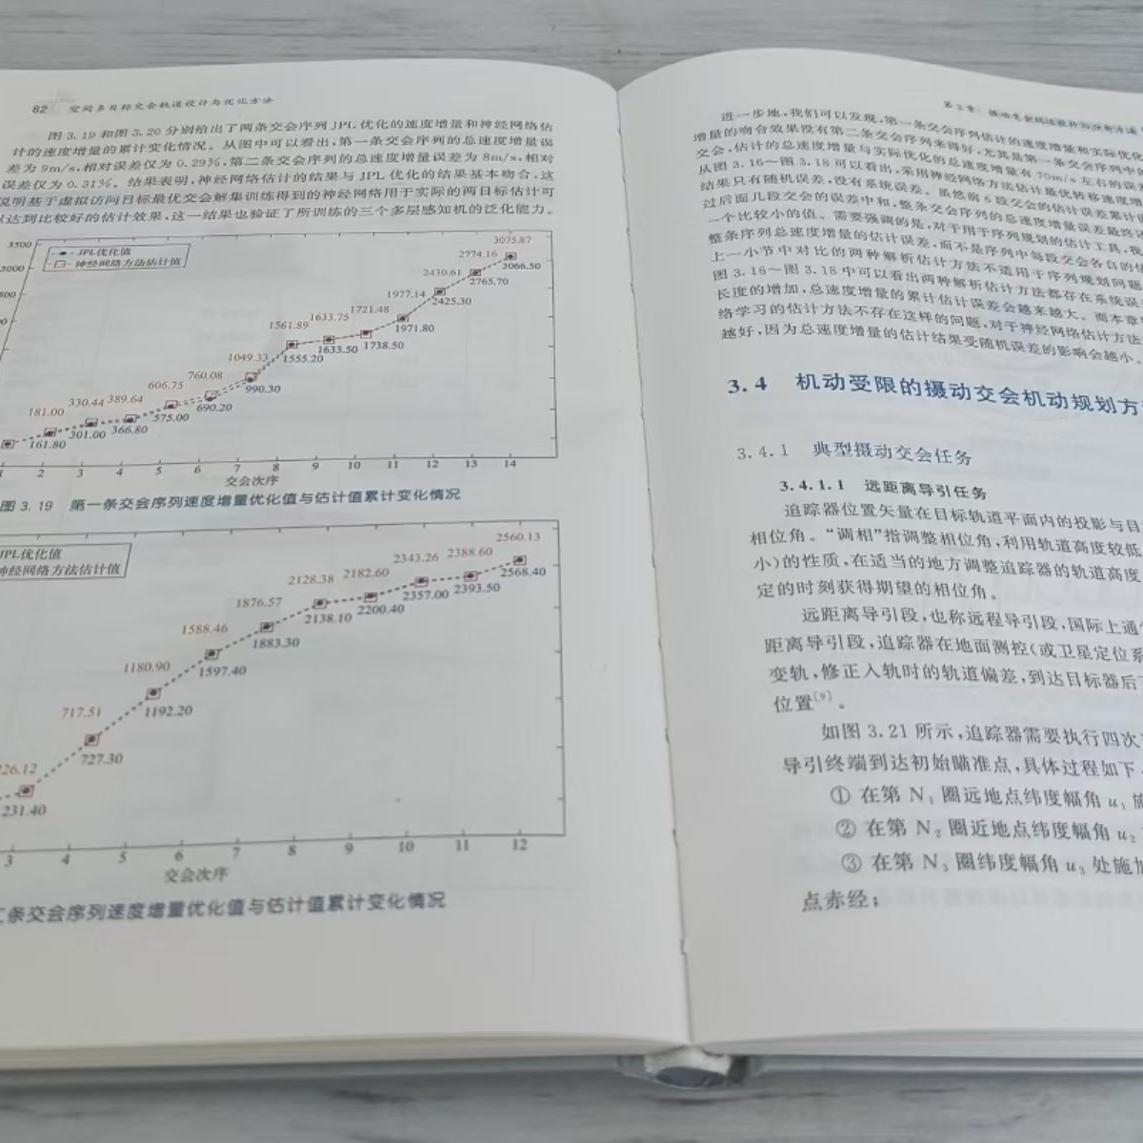 82 空间多目标交会轨道设计与优化方法
图 3.19 和图 3.20 分别给出了两条交会序列 JPL 优化的速度增量和神经网络估
计的速度增量的累计变化情况。从图中可以看出,第一条交会序列的总速度增量误
差为 9m/s,相对误差仅为 0.29%,第二条交会序列的总速度增量误差为 8m/s,相对
误差仅为 0.31%。结果表明,神经网络估计的结果与 JPL 优化的结果基本吻合,这
说明基于虚拟访问目标最优交会解集训练得到的神经网络用于实际的两目标估计可
以达到比较好的估计效果,这一结果也验证了所训练的三个多层感知机的泛化能力。
3500
3000
JPL优化值
神经网络方法估计值
181.00 330.44 389.64 606.75 760.08 1049.33 1561.89 1633.75 1721.48 1977.14 2430.61 2774.16 3075.87
161.80 301.00 366.80 575.00 690.20 990.30 1555.20 1633.50 1738.50 1971.80 2425.30 2765.70 3066.50
2 3 4 5 6 7 8 9 10 11 12 13 14
交会次序
图 3.19 第一条交会序列速度增量优化值与估计值累计变化情况
JPL优化值
神经网络方法估计值
26.12 717.51 1180.90 1588.46 1876.57 2128.38 2182.60 2343.26 2388.60 2560.13
231.40 727.30 1192.20 1597.40 1883.30 2138.10 2200.40 2357.00 2393.50 2568.40
3 4 5 6 7 8 9 10 11 12
交会次序
条交会序列速度增量优化值与估计值累计变化情况
进一步地,我们可以发现,第一条交会序列估计的速度增量和实际优化
增量的吻合效果没有第二条交会序列来得好,尤其是第一条交会序列中的
交会,估计的总速度增量与实际优化的总速度增量有 70m/s 左右的误
从图 3.16~图 3.18 可以看出,采用神经网络方法估计最优转移速度增
结果只有随机误差,没有系统误差。虽然前 6 段交会的估计误差累计
过后面几段交会的误差中和,整条交会序列的总速度增量误差最终还
一个比较小的值。需要强调的是,对于用于序列规划的估计工具,我
整条序列总速度增量的估计误差,而不是序列中每段交会各自的估
上一小节中对比的两种解析估计方法不适用于序列规划问题
图 3.16~图 3.18 中可以看出两种解析估计方法都存在系统误
长度的增加,总速度增量的累计估计误差会越来越大。而本章
络学习的估计方法不存在这样的问题,对于神经网络估计方法
越好,因为总速度增量的估计结果受随机误差的影响会越小。
3.4 机动受限的摄动交会机动规划方
3.4.1 典型摄动交会任务
3.4.1.1 远距离导引任务
追踪器位置矢量在目标轨道平面内的投影与目
相位角。“调相”指调整相位角,利用轨道高度较低
小)的性质,在适当的地方调整追踪器的轨道高度
定的时刻获得期望的相位角。
远距离导引段,也称远程导引段,国际上通
距离导引段,追踪器在地面测控(或卫星定位系
变轨,修正入轨时的轨道偏差,到达目标器后
位置[9]。
如图 3.21 所示,追踪器需要执行四次
导引终端到达初始瞄准点,具体过程如下
① 在第 N₁ 圈远地点纬度幅角 u₁ 施
② 在第 N₂ 圈近地点纬度幅角 u₂
③ 在第 N₃ 圈纬度幅角 u₃ 处施加
点赤经;